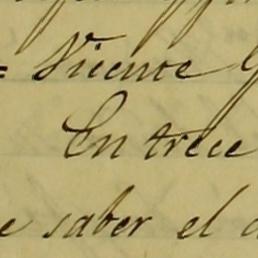 Vicente
En trece
saber el